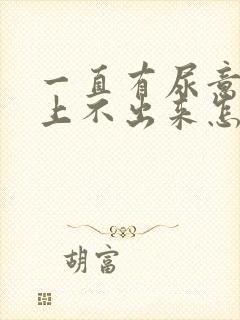 一直有尿意
上不出来怎
胡富